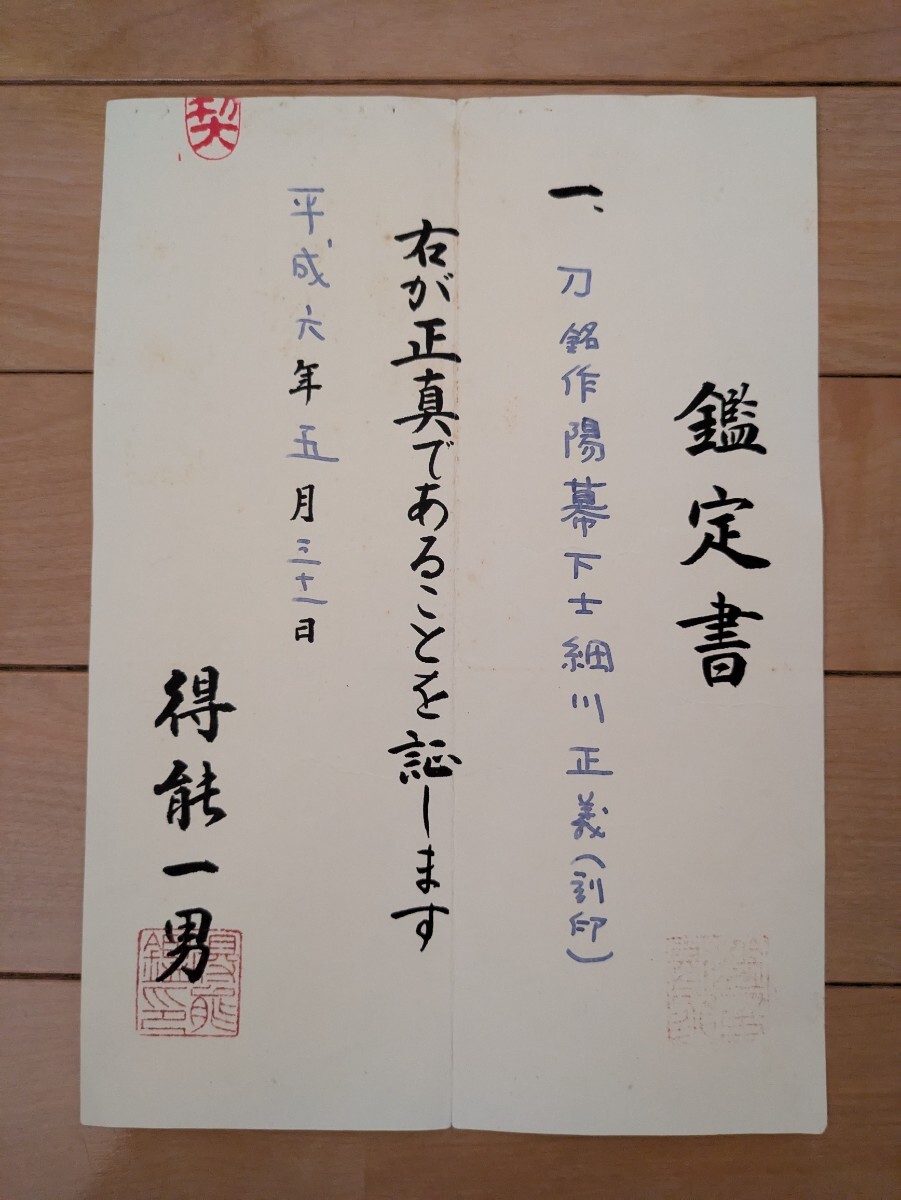 鑑定書
一、刀 銘作陽幕下士細川正義(刻印)
右が正真であることを証します
平成六年五月三十一日
得能一男
得能鑑印
契